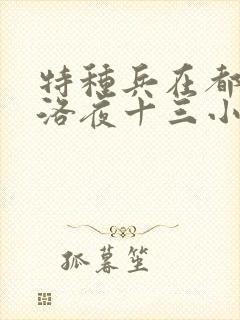 特種兵在都
洛夜十三小
孤暮笙